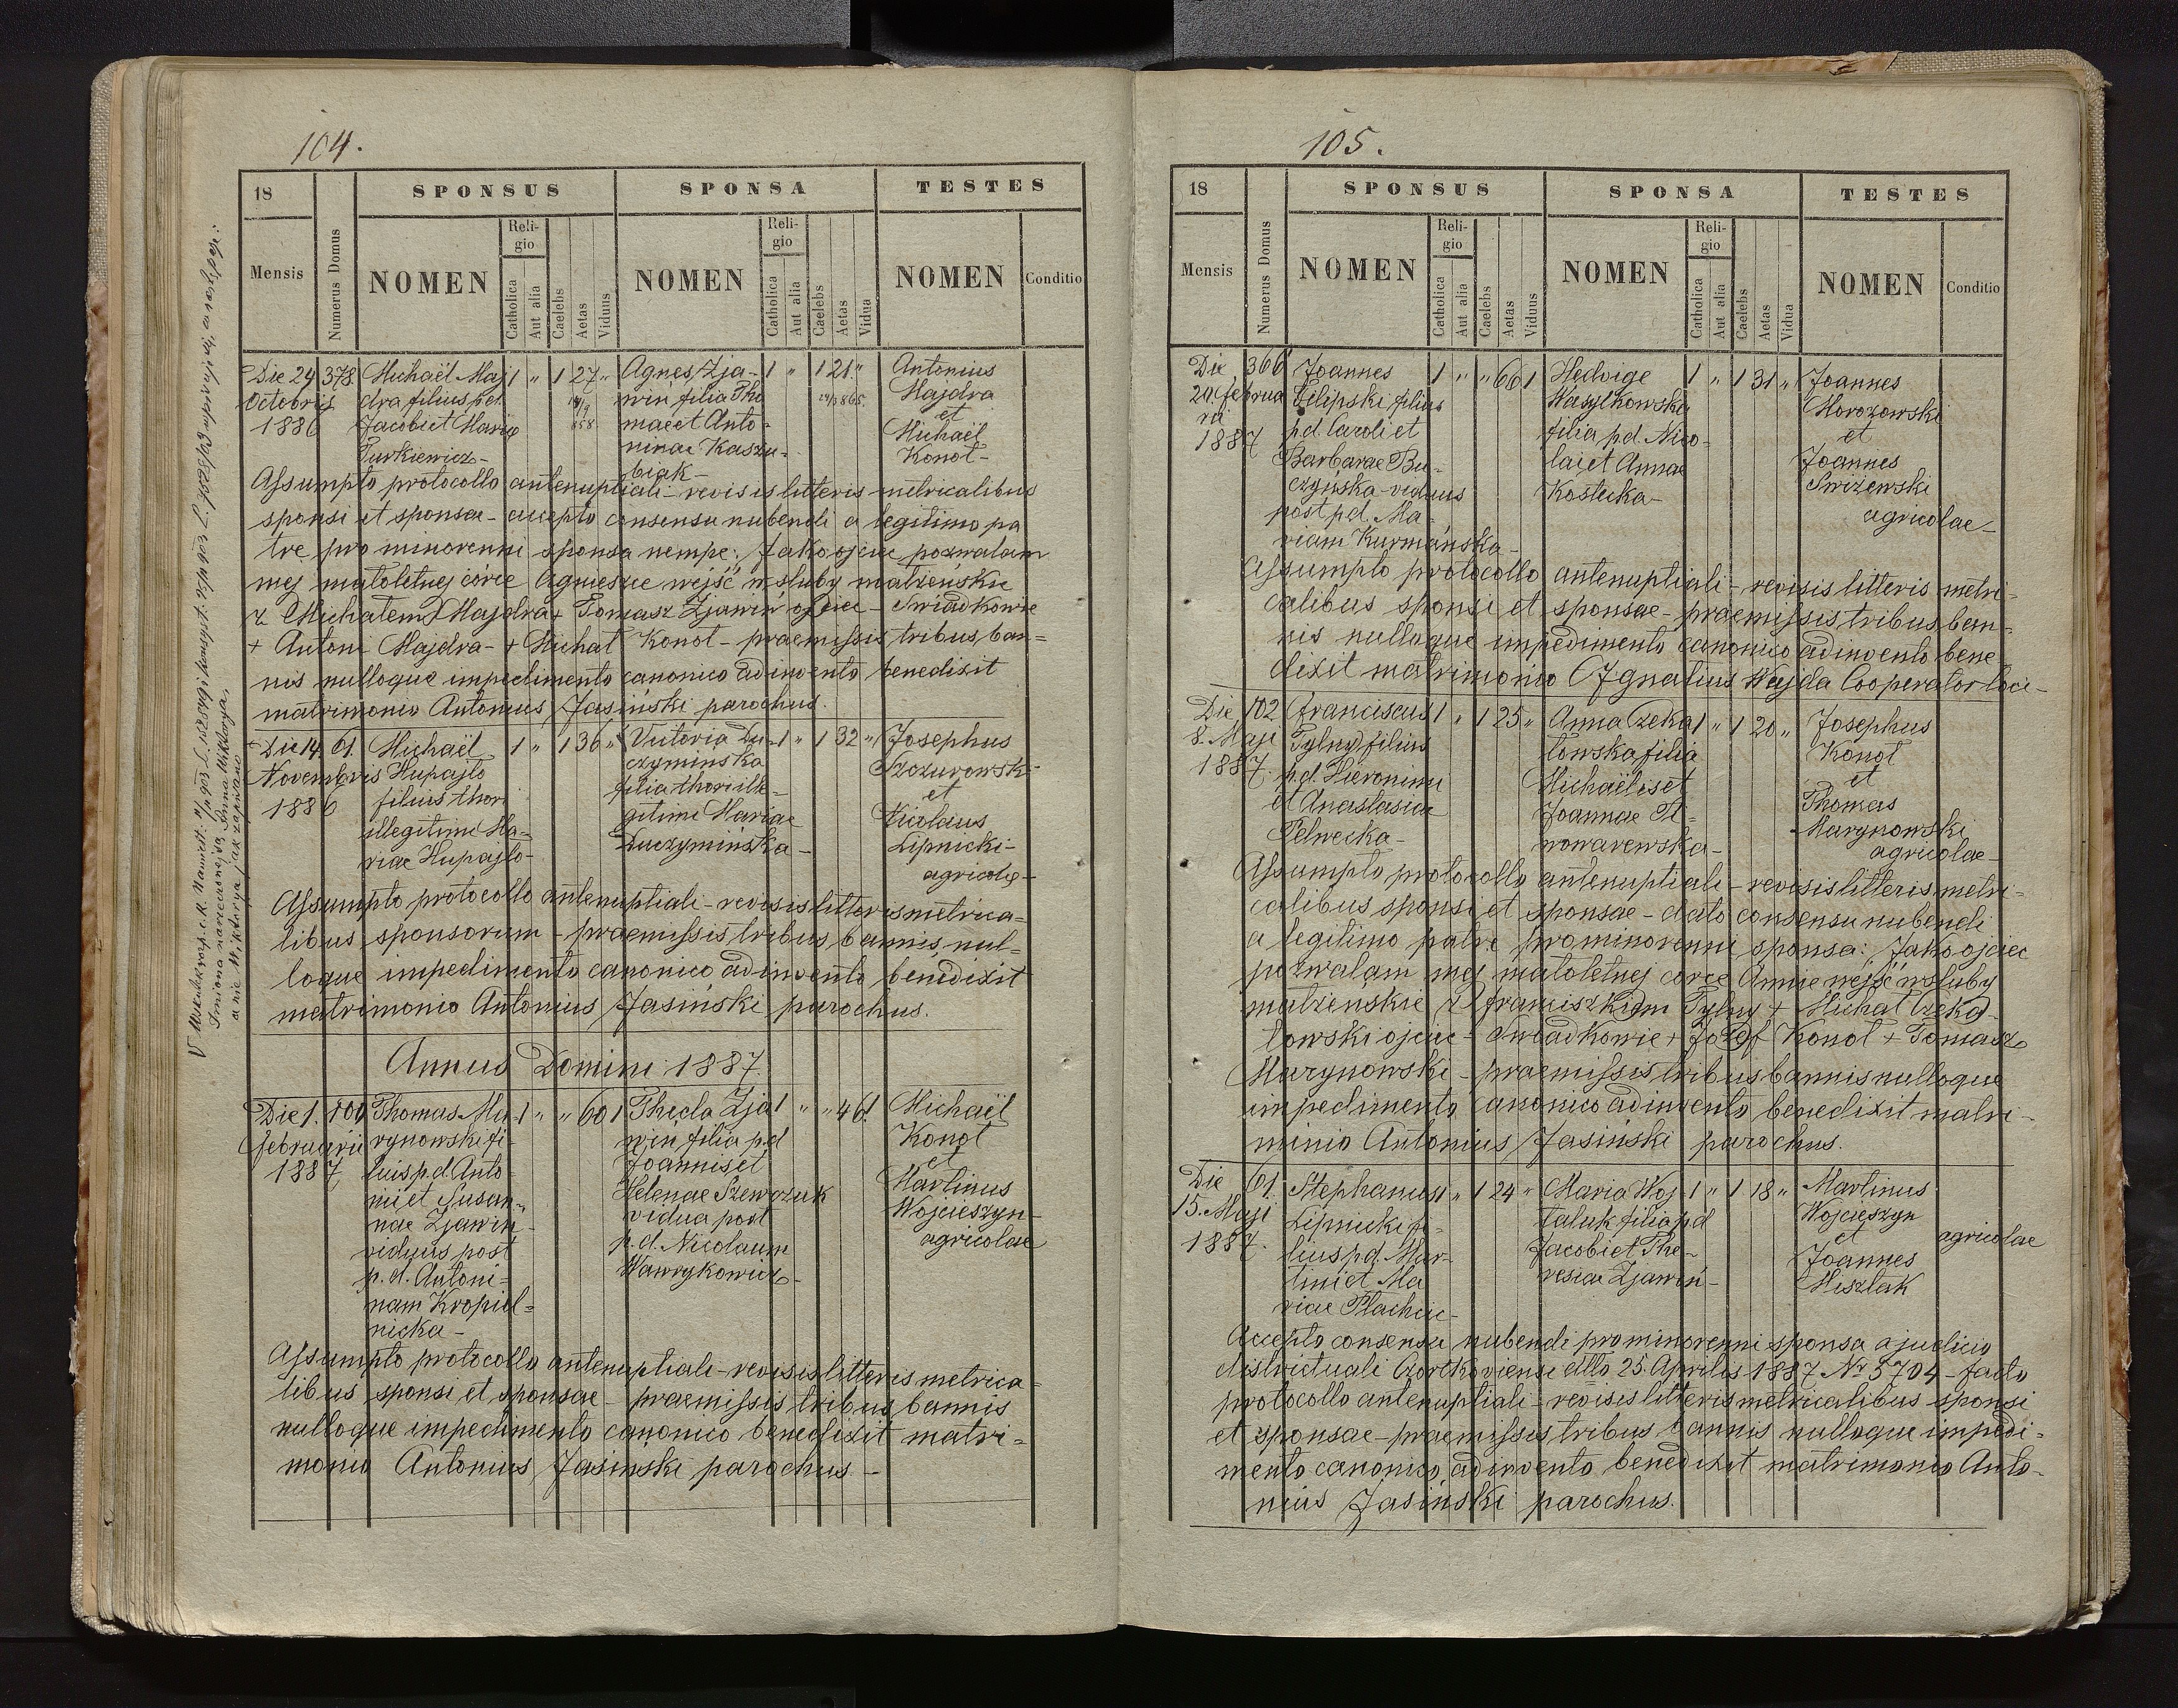 104.
18
SPONSUS
SPONSA
TESTES
Mensis
Numerus Domus
NOMEN
Religio
Catholica
Aut alia
Caelebs
Aetas
Viduus
NOMEN
Religio
Catholica
Aut alia
Caelebs
Aetas
Vidua
NOMEN
Conditio
Die 24
Octobris
1886
378
Michaël Maj
dra filius p.d.
Jacobi et Mariae
Turkiewicz-
1 " 1 27 "
Agnes Zja-
win filia Tho
mae et Anto-
ninae Kaszu-
biak-
1 " 1 21 "
Antonius
Majdra
et
Michaël
Konot-
Assumpto protocollo antenuptiali - revisis litteris metricalibus
sponsi et sponsae - accepto consensu nubendi a legitimo pa
tre pro minorenni sponsa nempe: Jako ojciec pozwalam
mej małoletnej córce Agnieszce wejść w śluby małżeńskie
z Michałem Majdra + Tomasz Zjawiń ojciec - Świadkowie
+ Antoni Majdra - + Michał Konot - praemissis tribus ban=
nis nulloque impedimento canonico adinvento benedixit
matrimonio Antonius Jasiński parochus.
Die 14
Novembris
1886
61.
Michaël
Hupajło
filius thori
illegitimi Ma-
riae Hupajło-
1 " 1 36 "
Victoria Łu-
czyminska
filia thori ille-
gitimi Mariae
Łuczymińska-
1 " 1 32 "
Josephus
Szczurowski
et
Nicolaus
Lipnicki-
agricolae-
Assumpto protocollo antenuptiali - revisis litteris metrica=
libus sponsorum - praemissis tribus bannis, nul=
loque impedimento canonico adinvento benedixit
matrimonio Antonius Jasiński parochus.
Annus Domini 1887.
Die 1.
Februarii
1887
101
Thomas Ma-
rynowski fi-
lius p.d. Anto-
nii et Susan-
nae Zjawin-
viduus post
p.d. Antoni=
nam Kropiel=
nicka-
1 " " 60 1
Thecla Zja
win filia p.d
Joannis et
Helenae Szewczuk
vidua post
p.d. Nicolaum
Wawrykowicz-
1 " " 46 1
Michaël
Konot
et
Martinus
Wojcieszyn-
agricolae
Assumpto protocollo antenuptiali - revisis litteris metrica=
libus sponsi et sponsae - praemissis tribus bannis
nulloque impedimento canonico benedixit matri=
monio Antonius Jasiński parochus-
105.
18
SPONSUS
SPONSA
TESTES
Mensis
Numerus Domus
NOMEN
Religio
Catholica
Aut alia
Caelebs
Aetas
Viduus
NOMEN
Religio
Catholica
Aut alia
Caelebs
Aetas
Vidua
NOMEN
Conditio
Die
20 februa
rii
1887
366
Joannes
Filipski filius
p.d. Caroli et
Barbarae Bu-
czyńska - viduus
post p.d. Ma-
riam Kurmańska-
1 " " 66 1
Hedvige
Wasylkowska
filia p.d. Nico-
lai et Annae
Kostecka-
1 " 1 31 "
Joannes
Morozowski
et
Joannes
Swiżewski
agricolae-
Assumpto protocollo antenuptiali - revisis litteris metri=
calibus sponsi et sponsae - praemissis tribus ban=
nis nulloque impedimento canonico adinvento bene
dixit matrimonio Ignatius Wajda Cooperator loci-
Die
8. Maji
1887.
102
Franciscus
Tylny filius
p.d. Hieronimi
et Anastasiae
Telwecka-
1 " 1 25 "
Anna Czeka
łowska filia
Michaëlis et
Joannae
1 " 1 20 "
Josephus
Konot
et
Thomas
Marynowski
agricolae-
Assumpto protocollo antenuptiali - revisis litteris metri=
calibus sponsi et sponsae - dato consensu nubendi
a legitimo patre pro minorenni sponsa: Jako ojciec
pozwalam mej małoletnej córce Annie wejść w śluby
małżeńskie z Franciszkiem Tylny + Michał Czeka-
łowski ojciec - Świadkowie + Józef Konot + Tomasz
Marynowski - praemissis tribus bannis nulloque
impedimento canonico adinvento benedixit matri-
minio Antonius Jasiński parochus.
Die
15. Maji
1887.
61.
Stephanus
Lipnicki fi-
lius p.d. Mar-
tini et Ma
riae Plachcic-
1 " 1 24 "
Maria Woj
taluk filia p.d
Jacobi et The-
resiae Zjawiń-
1 " 1 18 "
Martinus
Wojcieszyn
et
Joannes
Miszlak
agricolae
Accepto consensu nubendi pro minorenni sponsa a judicio
districtuali Czortkoviensi ddto 25 Aprilis 1887 Nr 3704 - facto
protocollo antenuptiali - revisis litteris metricalibus sponsi
et sponsae - praemissis tribus bannis nulloque impedi=
mento canonico adinvento benedixit matrimonio Anto-
nius Jasiński parochus.